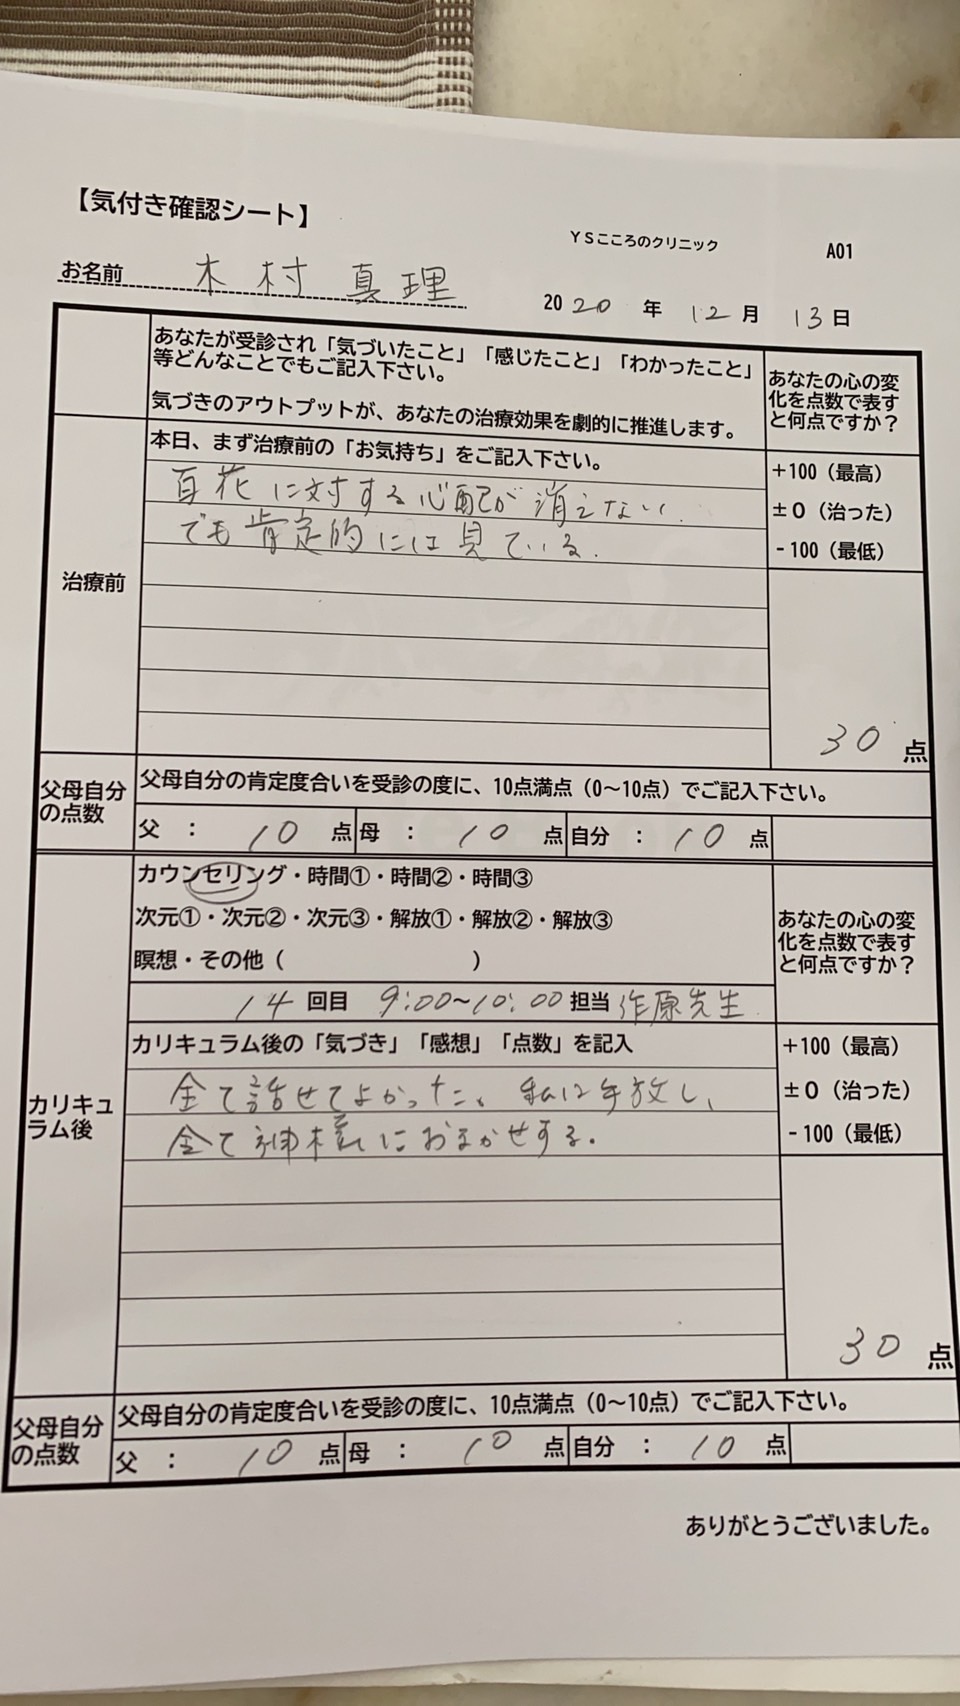 【気付き確認シート】
YSこころのクリニック
A01
お名前 木村 真理
2020年 12月 13日
あなたが受診され「気づいたこと」「感じたこと」「わかったこと」
等どんなことでもご記入下さい。
気づきのアウトプットが、あなたの治療効果を劇的に推進します。
あなたの心の変
化を点数で表す
と何点ですか？
治療前
本日、まず治療前の「お気持ち」をご記入下さい。
百花に対する心配が消えない.
でも肯定的には見ている.
+100（最高）
±0（治った）
-100（最低）
30点
父母自分
の点数
父母自分の肯定度合いを受診の度に、10点満点（0～10点）でご記入下さい。
父 ： 10 点 母 ： 10 点 自分 ： 10 点
カウンセリング・時間①・時間②・時間③
次元①・次元②・次元③・解放①・解放②・解放③
瞑想・その他（ ）
あなたの心の変
化を点数で表す
と何点ですか？
14 回目 9:00～10:00 担当 作原先生
カリキュ
ラム後
カリキュラム後の「気づき」「感想」「点数」を記入
全て話せてよかった。私は手放し、
全て神様におまかせする。
+100（最高）
±0（治った）
-100（最低）
30点
父母自分
の点数
父母自分の肯定度合いを受診の度に、10点満点（0～10点）でご記入下さい。
父 ： 10 点 母 ： 10 点 自分 ： 10 点
ありがとうございました。